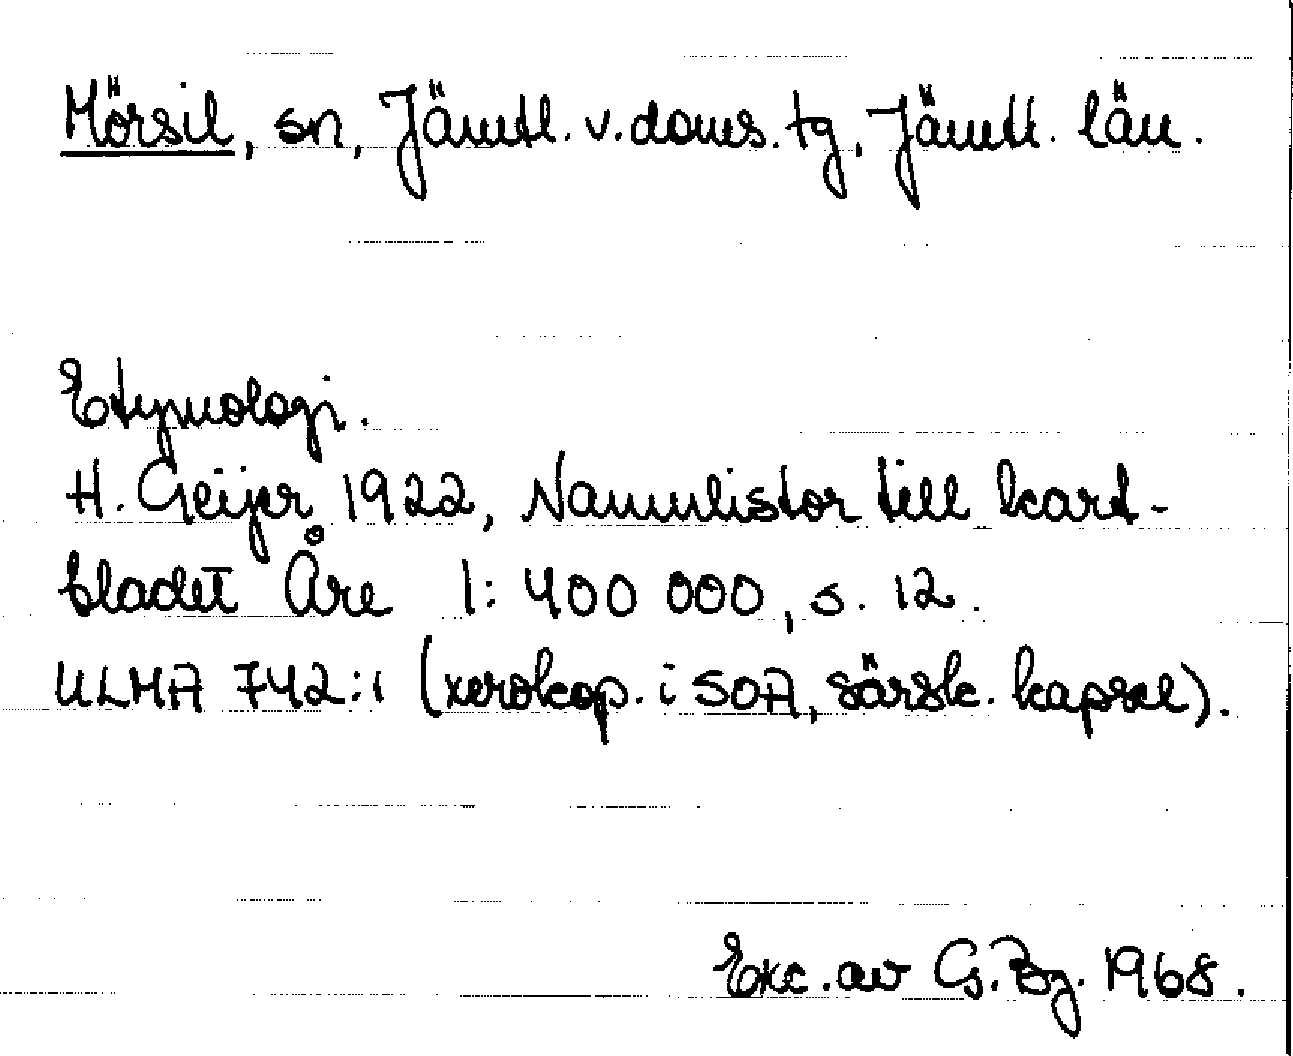 Mörsil, sn, Jämtl. v. doms. tg, Jämtl. län.
Etymologi.
H. Geijer 1922, Namnlistor till kart-
bladet Åre 1:400 000, s. 12.
ULMA 742:1 (xerokop. i SOA, särsk. kapsel).
Exc. av G. Bg. 1968.